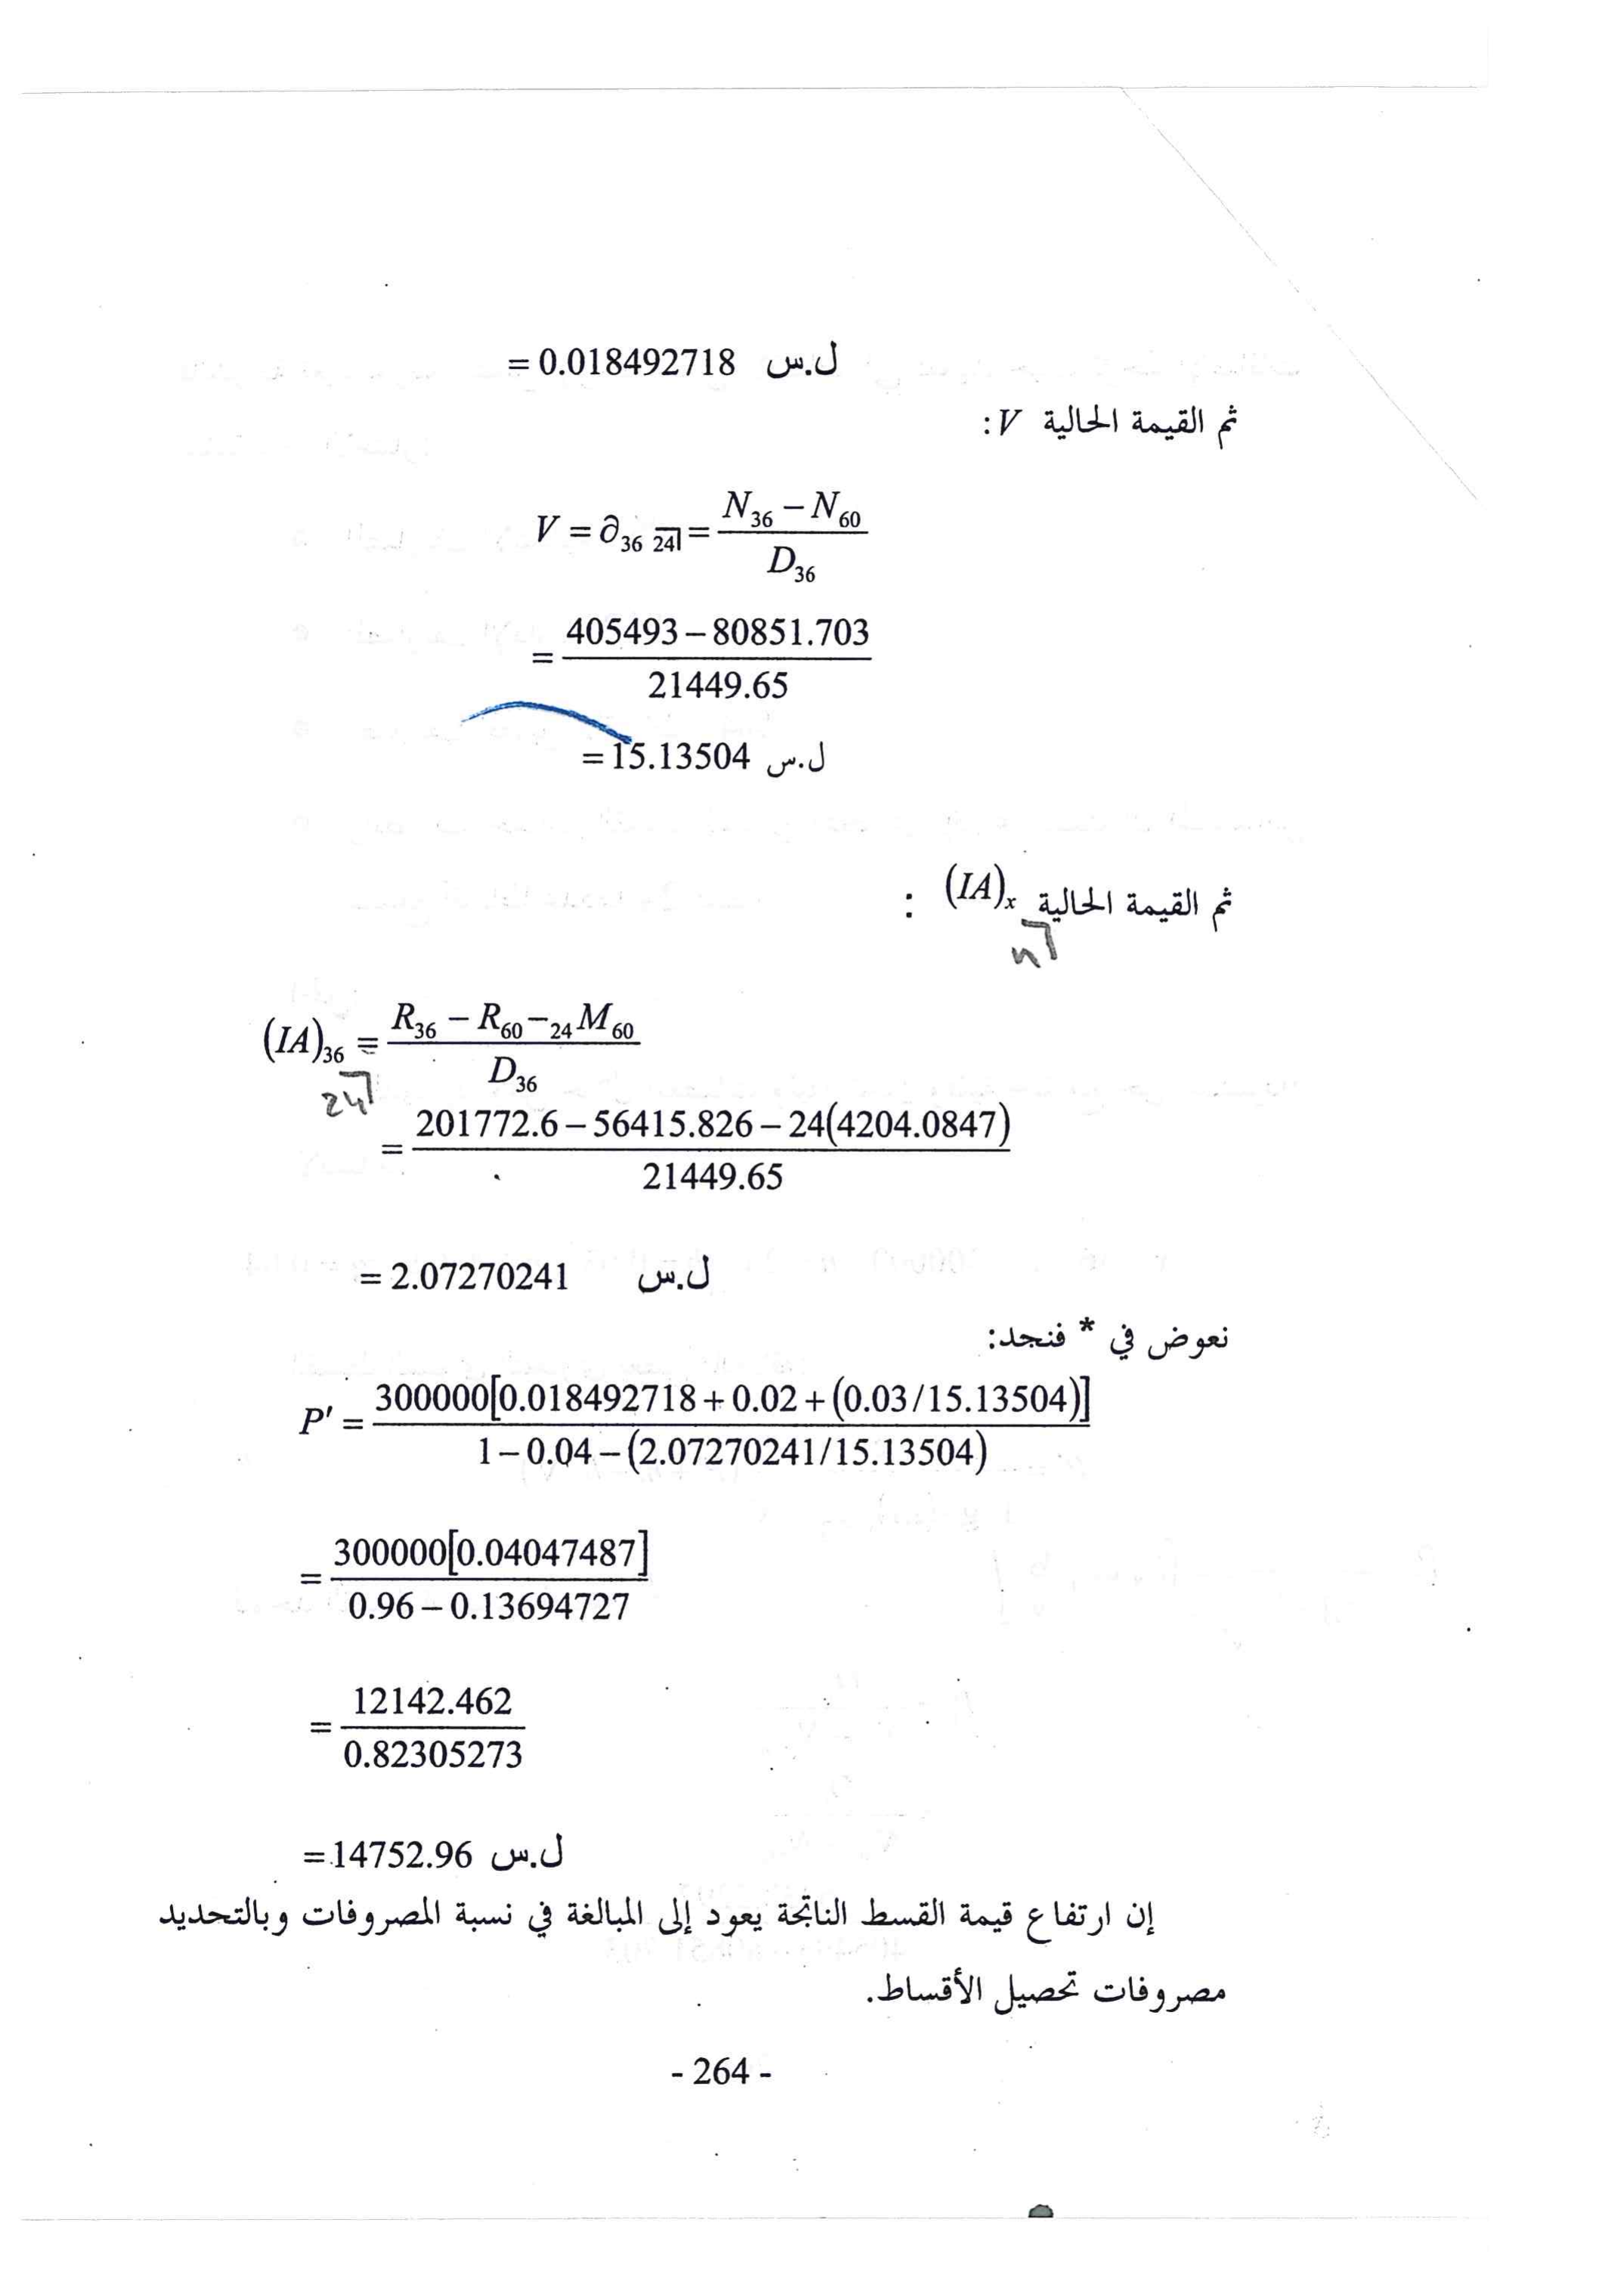 = 0.018492718 ل.س
ثم القيمة الحالية V:
V = ∂₃₆ ₂₄̅| = (N₃₆ − N₆₀) / D₃₆
= (405493 − 80851.703) / 21449.65
= 15.13504 ل.س
ثم القيمة الحالية (IA)ₓ :
n̅|
(IA)₃₆ = (R₃₆ − R₆₀ −₂₄ M₆₀) / D₃₆
24̅|
= (201772.6 − 56415.826 − 24(4204.0847)) / 21449.65
= 2.07270241 ل.س
نعوض في * فنجد:
P′ = 300000[0.018492718 + 0.02 + (0.03/15.13504)] / 1 − 0.04 − (2.07270241/15.13504)
= 300000[0.04047487] / 0.96 − 0.13694727
= 12142.462 / 0.82305273
= 14752.96 ل.س
إن ارتفاع قيمة القسط الناتجة يعود إلى المبالغة في نسبة المصروفات وبالتحديد
مصروفات تحصيل الأقساط.
- 264 -